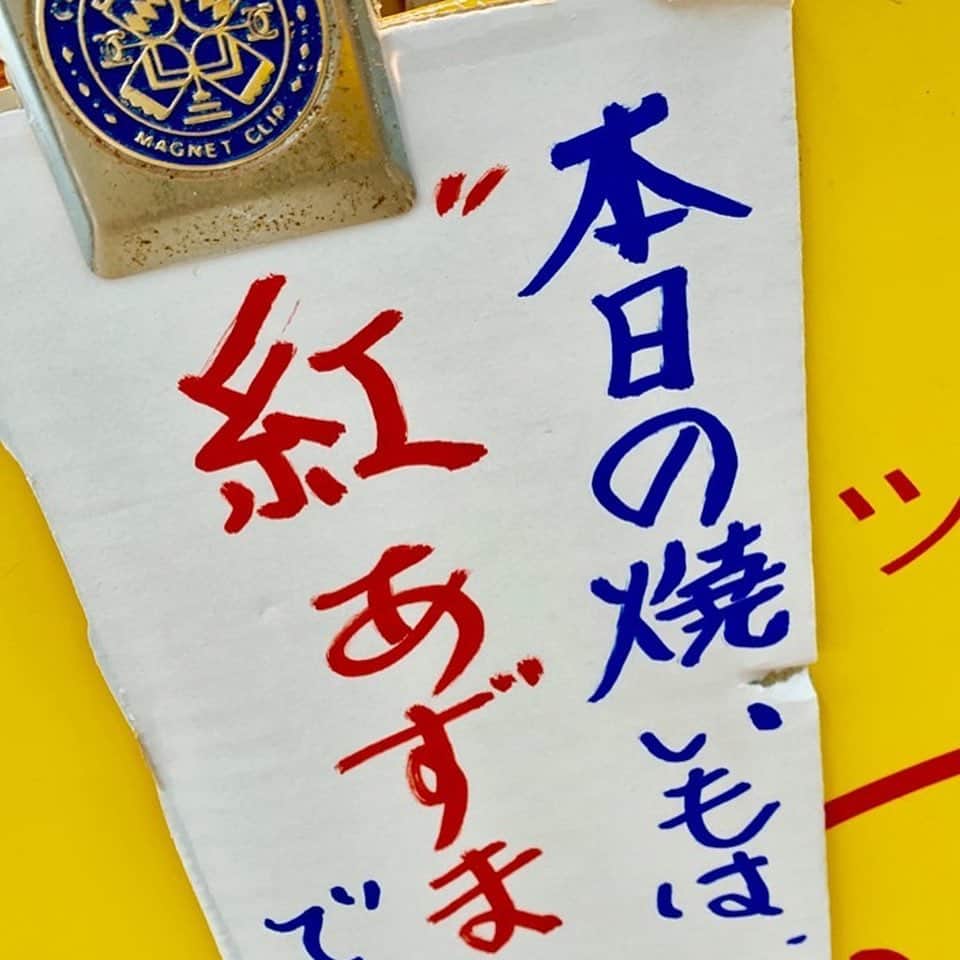 本日の焼いもは、
〃紅あずま
で
ッ
MAGNET CLIP